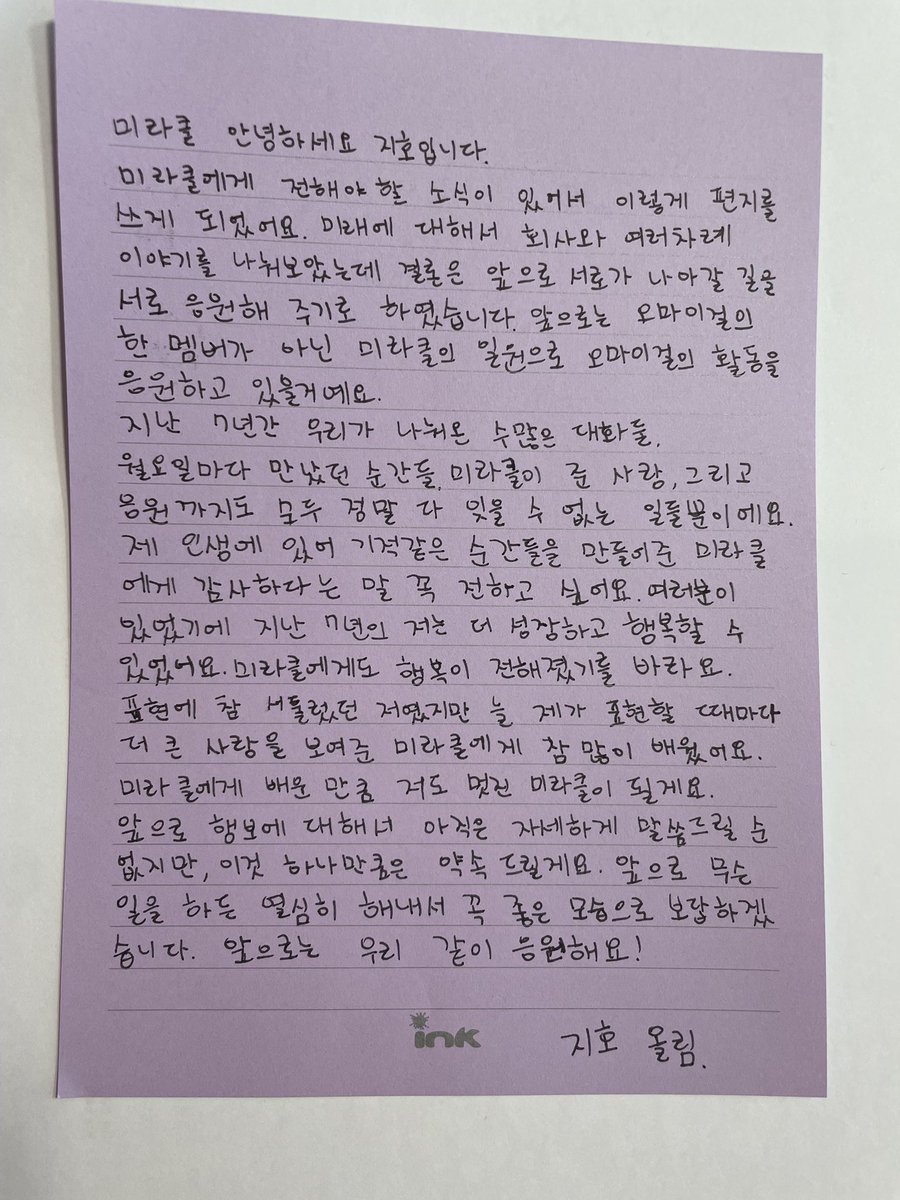 미라클 안녕하세요 지호입니다.
미라클에게 전해야할 소식이 있어서 이렇게 편지를
쓰게 되었어요. 미래에 대해서 회사와 여러차례
이야기를 나눠보았는데 결론은 앞으로 서로가 나아갈 길을
서로 응원해 주기로 하였습니다. 앞으로는 오마이걸의
한 멤버가 아닌 미라클의 일원으로 오마이걸의 활동을
응원하고 있을거예요.
지난 7년간 우리가 나눠온 수많은 대화들,
월요일마다 만났던 순간들, 미라클이 준 사랑, 그리고
응원까지도 모두 정말 다 잊을 수 없는 일들뿐이에요.
제 인생에 있어 기적같은 순간들을 만들어준 미라클
에게 감사하다는 말 꼭 전하고 싶어요. 여러분이
있었기에 지난 7년의 저는 더 성장하고 행복할 수
있었어요. 미라클에게도 행복이 전해졌기를 바라요.
표현에 참 서툴렀던 저였지만 늘 제가 표현할 때마다
더 큰 사랑을 보여준 미라클에게 참 많이 배웠어요.
미라클에게 배운 만큼 저도 멋진 미라클이 될게요.
앞으로 행보에 대해서 아직은 자세하게 말씀드릴 순
없지만, 이것 하나만큼은 약속드릴게요. 앞으로 무슨
일을 하든 열심히 해내서 꼭 좋은 모습으로 보답하겠
습니다. 앞으로는 우리 같이 응원해요!
ink
지호 올림.